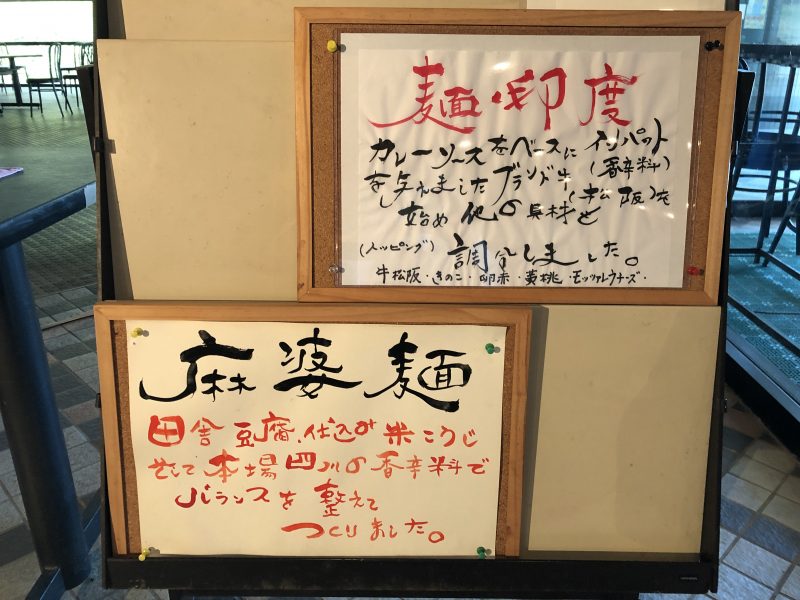 麺・印度
カレーソースをベースにインパット
(香辛料)
を与えましたブランド牛(松阪)を
始め他の具材と
(トッピング) 調合しました。
牛松阪・きのこ・卵赤・黄桃・モッツァレラチーズ・
麻婆麺
田舎豆腐、仕込み米こうじ
そして本場四川の香辛料で
バランスを整えて
つくりました。